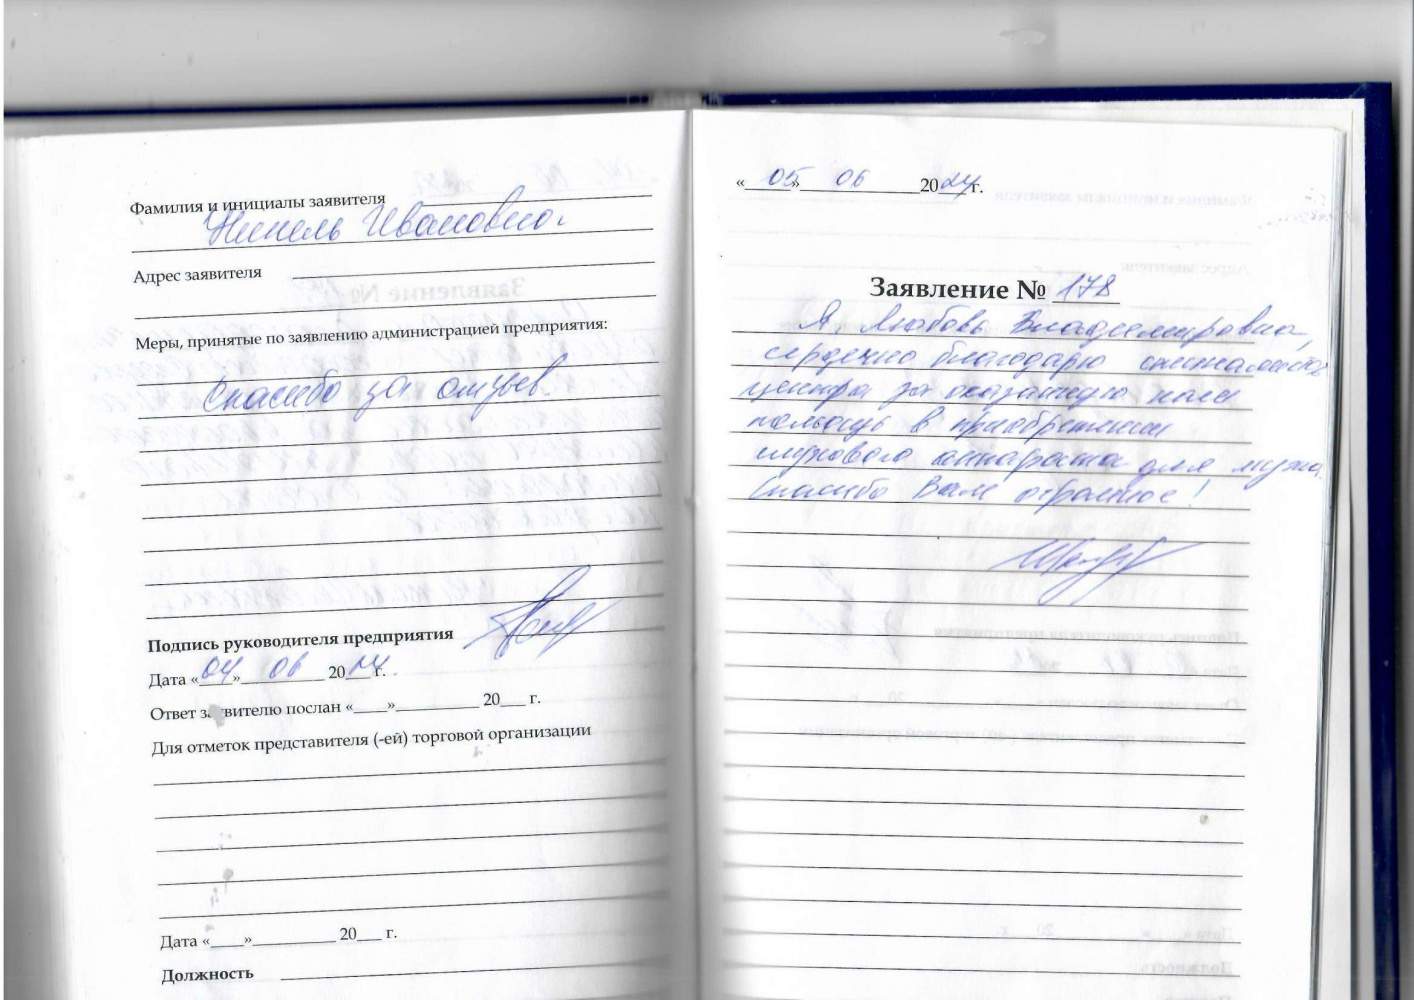 Фамилия и инициалы заявителя
Нинель Ивановна.
Адрес заявителя
Меры, принятые по заявлению администрацией предприятия:
Спасибо за отзыв.
Подпись руководителя предприятия
Дата «04» 06 2024 г.
Ответ заявителю послан «____»__________ 20___ г.
Для отметок представителя (-ей) торговой организации
Дата «____»__________ 20___ г.
Должность
«05» 06 2024 г.
Заявление № 178
Я Любовь Владимировна,
сердечно благодарю специалистов
центра за оказанную нам
помощь в приобретении
слухового аппарата для мужа.
Спасибо Вам огромное!